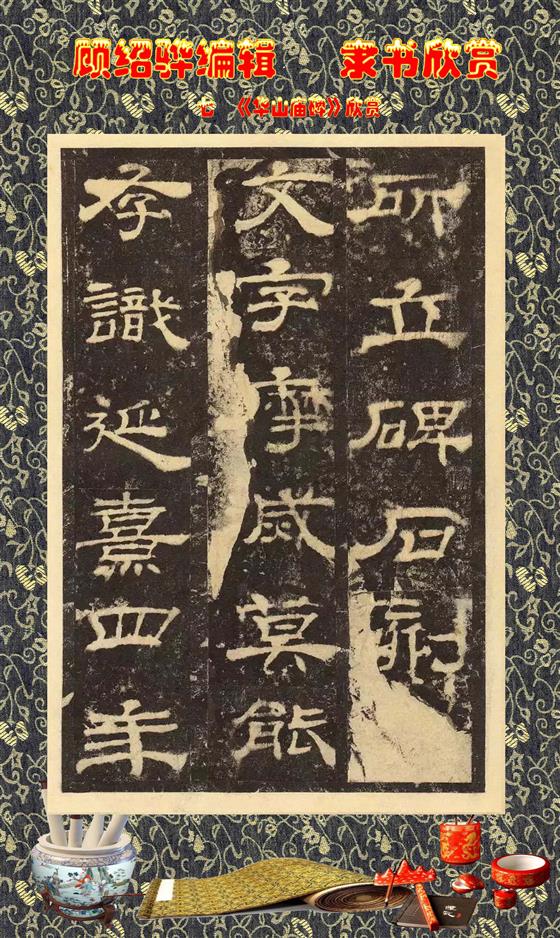 顾绍骅编辑 隶书欣赏
心 《华山庙碑》欣赏
所立碑石刻
文字摩烕莫能
存識延熹四年